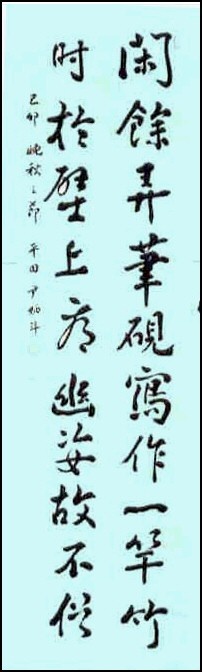 閑餘弄筆硯寫作一竿竹
时於壁上看幽姿故不俗
己卯 晚秋之節 平田 尹炳斗